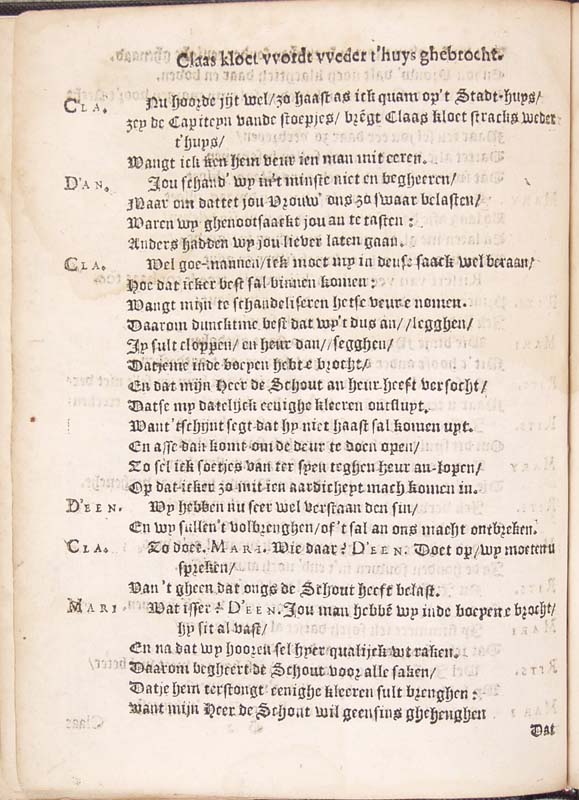 Claas kloet vvordt vveder t'huys ghebrocht.
CLA. Nu hoorde jijt wel/ zo haast as ick quam op't Stadt-huys/
zey de Capiteyn vande stoepjes/ brēgt Claas kloet stracks weder
t'huys/
Wangt ick ken hem veur ien man mit eeren.
D'AN. Jou schand' wy in't minste niet en begheeren/
Maar om dattet jou Vrouw' ons zo swaar belasten/
Waren wy ghenootsaackt jou an te tasten:
Anders hadden wy jou liever laten gaan.
CLA. Wel goe-mannen/ ick moet my in deuse saack wel beraan/
Hoe dat icker best sal binnen komen:
Wangt mijn te schandeliseren hetse veur e nomen.
Daarom duncktme best dat wy't dus an//legghen/
Jy sult cloppen/ en heur dan//segghen/
Datjeme inde boeyen hebt e brocht/
En dat mijn Heer de Schout an heur heeft versocht/
Datse my datelijck eenighe kleeren ontsluyt.
Want 'tschijnt segt dat hy niet haast sal komen uyt.
En asse dan komt om de deur te doen open/
Zo sel ick soetjes van ter syen teghen heur an-lopen/
Op dat icker zo mit ien aardicheyt mach komen in.
D'EEN. Wy hebben nu seer wel verstaan den sin/
En wy sullen't volbrenghen/ of 't sal an ons macht ontbreken.
CLA. To doet. MARI. Wie daar? D'EEN. Doet op/ wy moeten u
spreken/
Van 't gheen dat ongs de Schout heeft belast.
MARI. Wat isser? D'EEN. Jou man hebbē wy inde boeyen e brocht/
hy sit al vast/
En na dat wy hooren sel hyer qualijck wt raken.
Daarom begheert de Schout voor alle saken/
Datje hem terstongt eenighe kleeren sult brenghen:
Want mijn Heer de Schout wil geensins ghehenghen
Dat